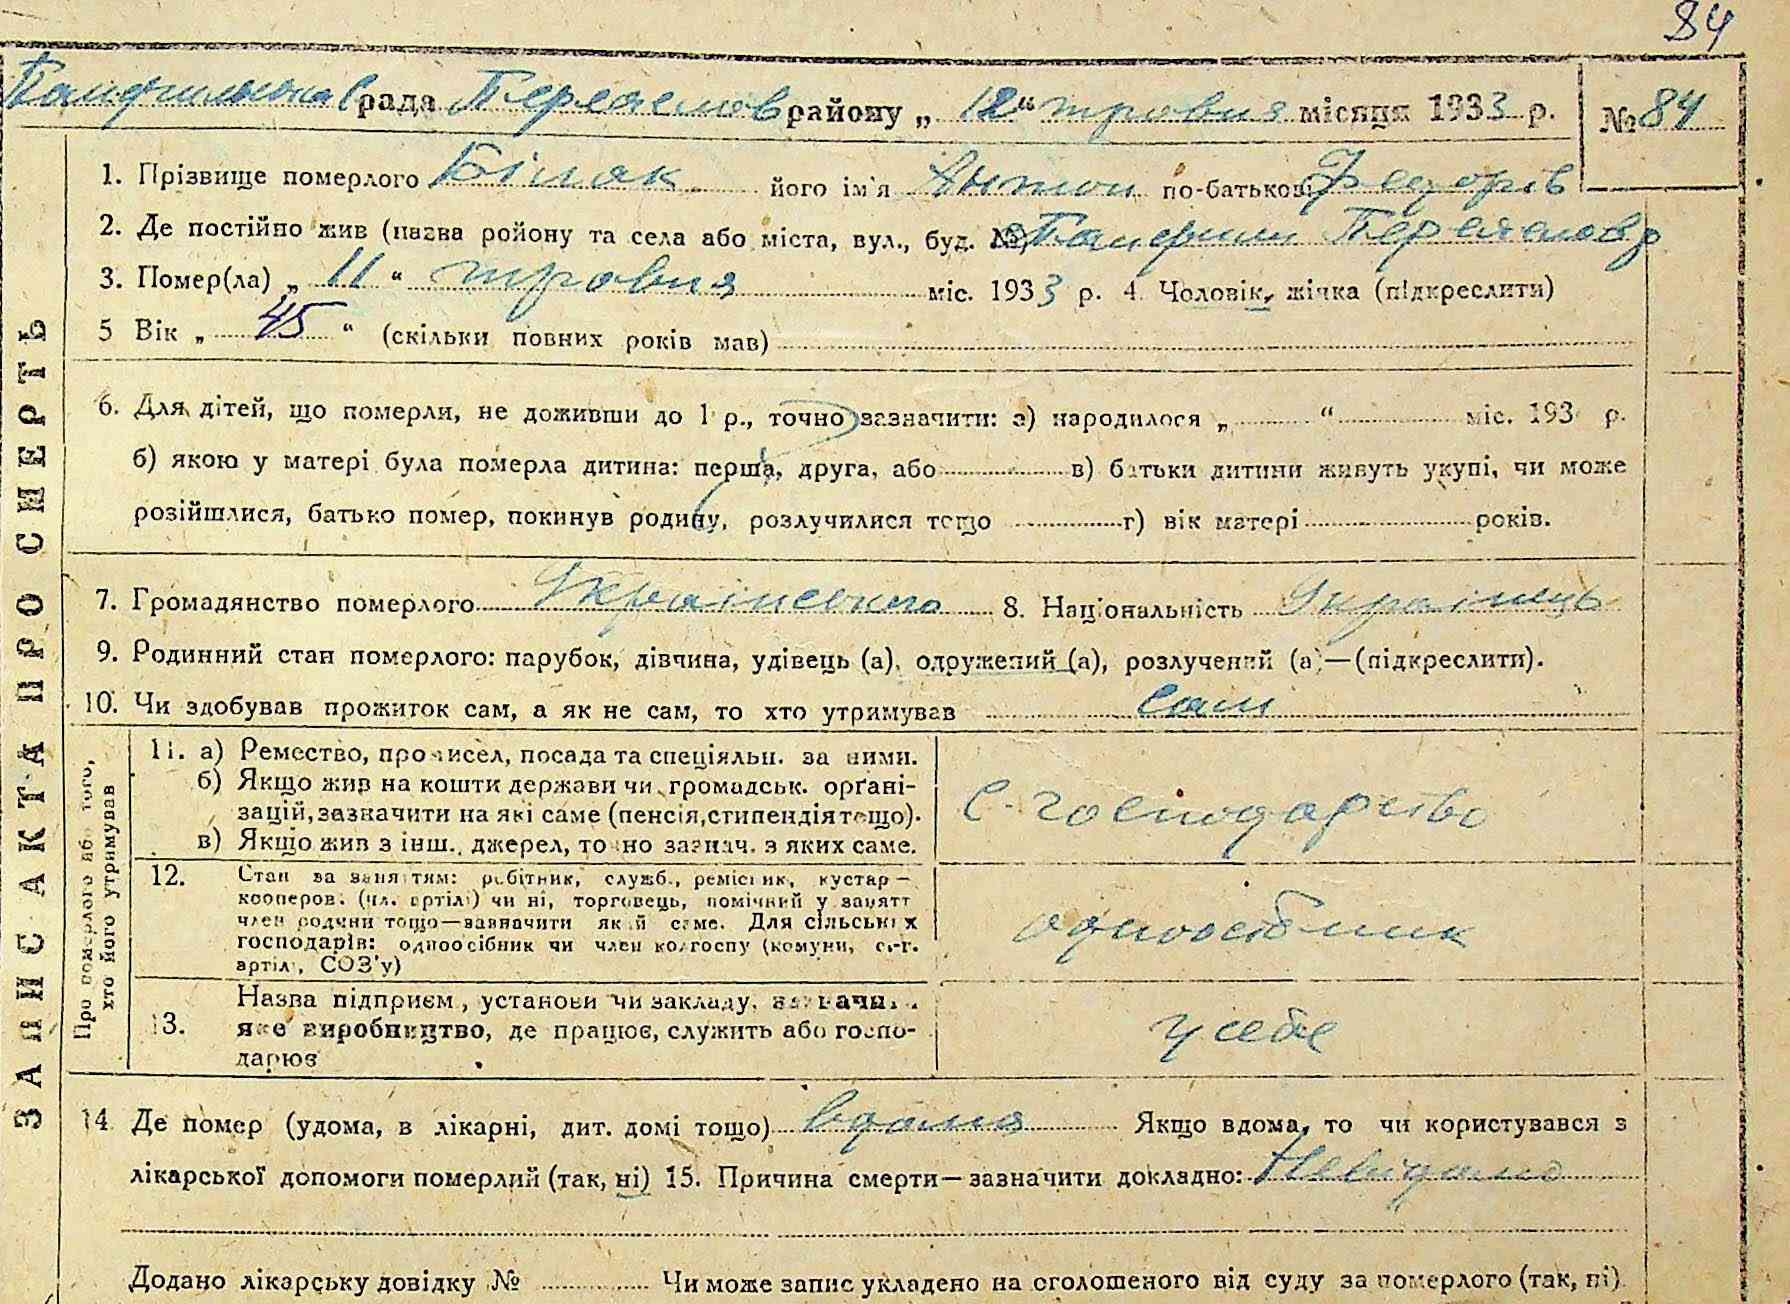 84
Панфильська с рада Переяслов району „ 12 “ травня місяця 1933 р. № 84
1. Прізвище померлого Біляк його ім'я Антон по-батькові Федорів
2. Де постійно жив (назва ройону та села або міста, вул., буд. № Панфили Переяслов р
3. Помер(ла) „ 11 “ травня міс. 1933 р. 4. Чоловік, жінка (підкреслити)
5 Вік „ 45 “ (скільки повних років мав)
6. Для дітей, що померли, не доживши до 1 р., точно зазначити: а) народилося „ “ міс. 193 р.
б) якою у матері була померла дитина: перша, друга, або в) батьки дитини живуть укупі, чи може
розійшлися, батько помер, покинув родину, розлучилися тощо г) вік матері років.
7. Громадянство померлого Українського 8. Національність Українець
9. Родинний стан померлого: парубок, дівчина, удівець (а), одружений (а), розлучений (а)—(підкреслити).
10. Чи здобував прожиток сам, а як не сам, то хто утримував сам
ЗАПИС АКТА ПРО СМЕРТЬ
Про померлого або того,
хто його утримував
11. а) Ремество, промисел, посада та спеціяльн. за ними.
б) Якщо жив на кошти держави чи громадськ. орґані-
зацій, зазначити на які саме (пенсія, стипендія тощо).
в) Якщо жив з інш. джерел, точно зазнач. з яких саме.
с-господарство
12. Стан за заняттям: робітник, служб., ремісник, кустар—
кооперов. (чл. артілі) чи ні, торговець, помічний у занятт
член родини тощо—зазначити який саме. Для сільських
господарів: одноосібник чи член колгоспу (комуни, с.-г.
артілі, СОЗ'у)
одноосібник
13. Назва підприєм., установи чи закладу, зазначит.
яке виробництво, де працює, служить або госпо-
дарює
у себе
14 Де помер (удома, в лікарні, дит. домі тощо) вдома Якщо вдома, то чи користувався з
лікарської допомоги померлий (так, ні) 15. Причина смерти—зазначити докладно: Невідомо
Додано лікарську довідку № Чи може запис укладено на оголошеного від суду за померлого (так, ні)